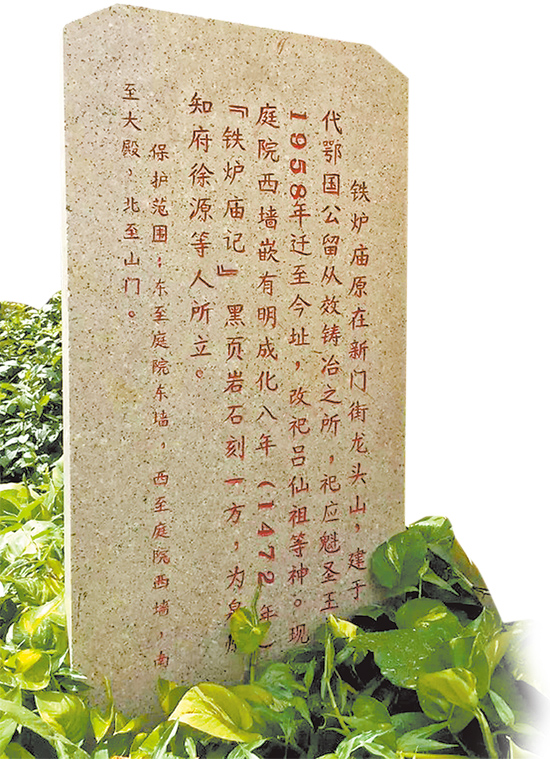 铁炉庙原在新门街龙头山，建于
代鄂国公留从效铸冶之所，祀应魁圣王
1958年迁至今址，改祀吕仙祖等神。现
庭院西墙嵌有明成化八年（1472年）
『铁炉庙记』黑页岩石刻一方，为泉
知府徐源等人所立。
保护范围：东至庭院东墙，西至庭院西墙，南
至大殿，北至山门。